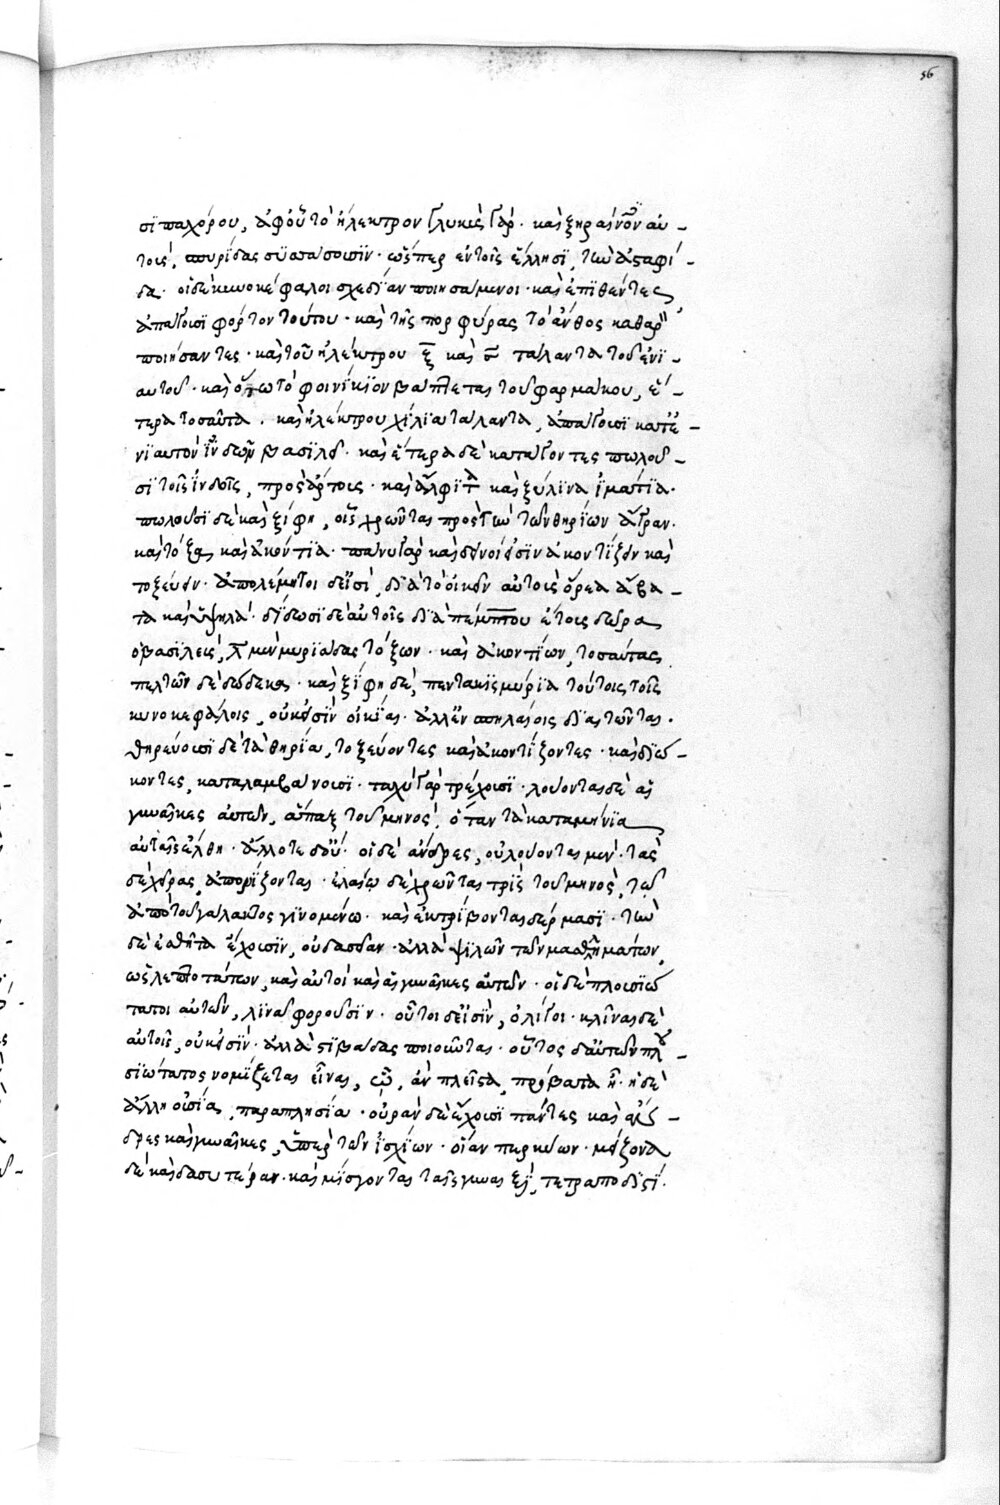 56
σϊ παχόρου, ἀφ' οὗ τὸ ἤλεκτρον γλυκὺς γάρ· καὶ ξηραίνουσιν αὐ-
τοὺς, σπυρίδας συσάσσουσιν· ὥσπερ ἐν τοῖς ἕλλησϊ, τὴν ἀσταφί-
δα· οἱ δὲ κυνοκέφαλοι σχεδίαν ποιησάμενοι· καὶ ἐπιθέντες
ἀπάγουσϊ φόρτον τούτου· καὶ τῆς πορφύρας τὸ ἄνθος καθαρὸν
ποιήσαντες· καὶ τοῦ ἠλέκτρου ξ καὶ σ τάλαντα τοῦ ἐνϊ-
αυτοῦ· καὶ ὅτω τὸ φοινίκϊον βάπτεται τοῦ φαρμάκου, ἕ-
τερα τοσαῦτα. καὶ ἠλέκτρου χίλϊα τάλαντα, ἀπάγουσϊ κατ' ἐ-
νϊαυτὸν ἰνδῶν βασϊλεῖ· καὶ ἕτερα δὲ κατάγοντες πωλοῦ-
σϊ τοῖς ἰνδοῖς, πρὸς ἄρτους· καὶ ἄλφιτα καὶ ξύλϊνα ἱμάτϊα·
πωλοῦσϊ δὲ καὶ ξίφη, οἷς χρῶνται πρὸς τὴν τῶν θηρίων ἄγραν·
καὶ τόξα καὶ ἀκόντϊα· πάνυ γὰρ καὶ δεινοί εἰσϊν ἀκοντίζειν καὶ
τοξεύειν· ἀπολέμητοι δέ εἰσϊ, διὰ τὸ οἰκεῖν αὐτοὺς ὄρεα ἄβα-
τα καὶ ὑψηλά· δίδωσϊ δὲ αὐτοῖς διὰ πέμπτου ἔτους δῶρα
ὁ βασϊλεὺς, λ μὲν μυρϊάδας τόξων· καὶ ἀκοντίων, τοσαύτας
πελτῶν δὲ δώδεκα· καὶ ξίφη δὲ, πεντακϊσμύρϊα τούτοις τοῖς
κυνοκεφάλοις, οὐκ εἰσὶν οἰκίαι· ἀλλ' ἐν σπηλαίοις διαιτῶνται·
θηρεύουσϊ δὲ τὰ θηρία, τοξεύοντες καὶ ἀκοντίζοντες· καὶ διώ-
κοντες, καταλαμβάνουσϊ· ταχὺ γὰρ τρέχουσϊ· λούονται δὲ αἱ
γυναῖκες αὐτῶν, ἅπαξ τοῦ μηνὸς, ὅταν τὰ καταμήνϊα
αὐταῖς ἔλθη· ἄλλοτε δ' οὔ· οἱ δὲ ἄνδρες, οὐ λούονται μέν· τὰς
δὲ χεῖρας ἀπονίζονται· ἐλαίω δὲ χρῶνται τρὶς τοῦ μηνὸς, τῷ
ἀπὸ τοῦ γάλακτος γϊνομένω· καὶ ἐκτρίβονται δέρμασι· τὴν
δὲ ἐσθῆτα ἔχουσϊν, οὐ δασεῖαν· ἀλλὰ ψϊλῶν τῶν μασθλημάτων,
ὡς λεπτοτάτων, καὶ αὐτοὶ καὶ αἱ γυναῖκες αὐτῶν· οἱ δὲ πλουσϊώ
τατοι αὐτῶν, λίνα φοροῦσϊν· οὗτοι δ' εἰσὶν, ὀλίγοι· κλῖναι δὲ
αὐτοῖς, οὐκ εἰσίν· ἀλλὰ στιβάδας ποιοῦνται· οὗτος δ' αὐτῶν πλου-
σϊώτατος νομίζεται εἶναι, ᾧ, ἂν πλεῖστα, πρόβατα ᾖ· ἡ δὲ
ἄλλη οὐσία, παραπλησία· οὐρὰν δὲ ἔχουσϊ πάντες καὶ ἄν-
δρες καὶ γυναῖκες, ὑπὲρ τῶν ἰσχίων· οἵαν περ κύων· μείζονα
δὲ καὶ δασυτέραν· καὶ μίσγονται ταῖς γυναιξὶ, τετραποδιστί·